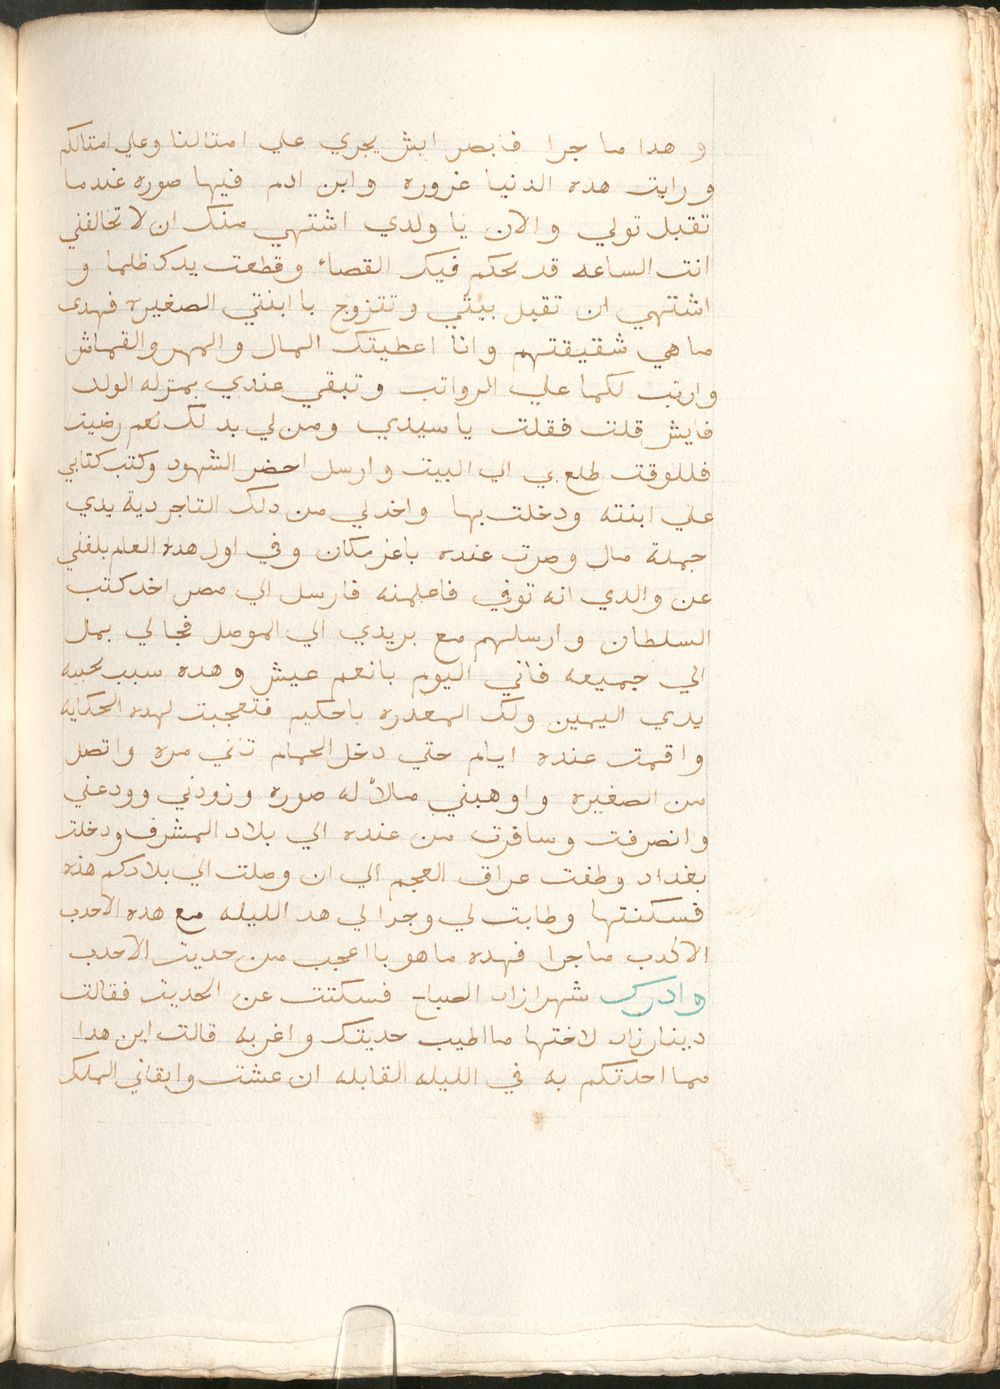 و هدا ما جرا فابصر ايش يجري علي امتالنا وعلي امتالكم
ورايت هده الدنيا غروره وابن ادم فيها صوره عندما
تقبل تولي والان يا ولدي اشتهي منك ان لا تخالفني
انت الساعه قد حكم فيك القصاء وقطعت يدك ظلما و
اشتهي ان تقبل بيتي وتتزوج با ابنتي الصغيره فهدى
ما هي شقيقتهم وانا اعطيتك المال والمهر والقماش
وارتب لكما علي الرواتب وتبقي عندي بمنزله الولد
فايش قلت فقلت يا سيدي ومن لي بدلك نعم رضيت
فللوقت طلع بي الي البيت وارسل احضر الشهود وكتب كتابي
علي ابنته ودخلت بها واخد لي من دلك التاجر دية يدي
جملة مال وصرت عنده باعز مكان وفي اول هدا العام بلغني
عن والدي انه توفي فاعلمته فارسل الي مصر اخد كتب
السلطان وارسلهم مع بريدي الي الموصل فجا لي بمل
الي جميعه فاني اليوم بانعم عيش وهده سبب تخبيه
يدي اليمين ولك المعدره يا حكيم فتعجبت لهده الحكايه
واقمت عنده ايام حتي دخل الحمام تني مره واتصل
من الصغيره واوهبني مالاً له صوره وزودني وودعني
وانصرفت وسافرت من عنده الي بلاد المشرف ودخلت
بغداد وطفت عراق العجم الي ان وصلت الي بلادكم هذه
فسكنتها وطابت لي وجرا لي هد الليله مع هده الاحدب
الاكدب ما جرا فهده ما هو با اعجب من حديت الاحدب
وادرك شهرازاد الصباح فسكتت عن الحديت فقالت
دينارزاد لاختها ما اطيب حديتك واغربه قالت اين هدا
مما احدتكم به في الليله القابله ان عشت وابقاني الملك